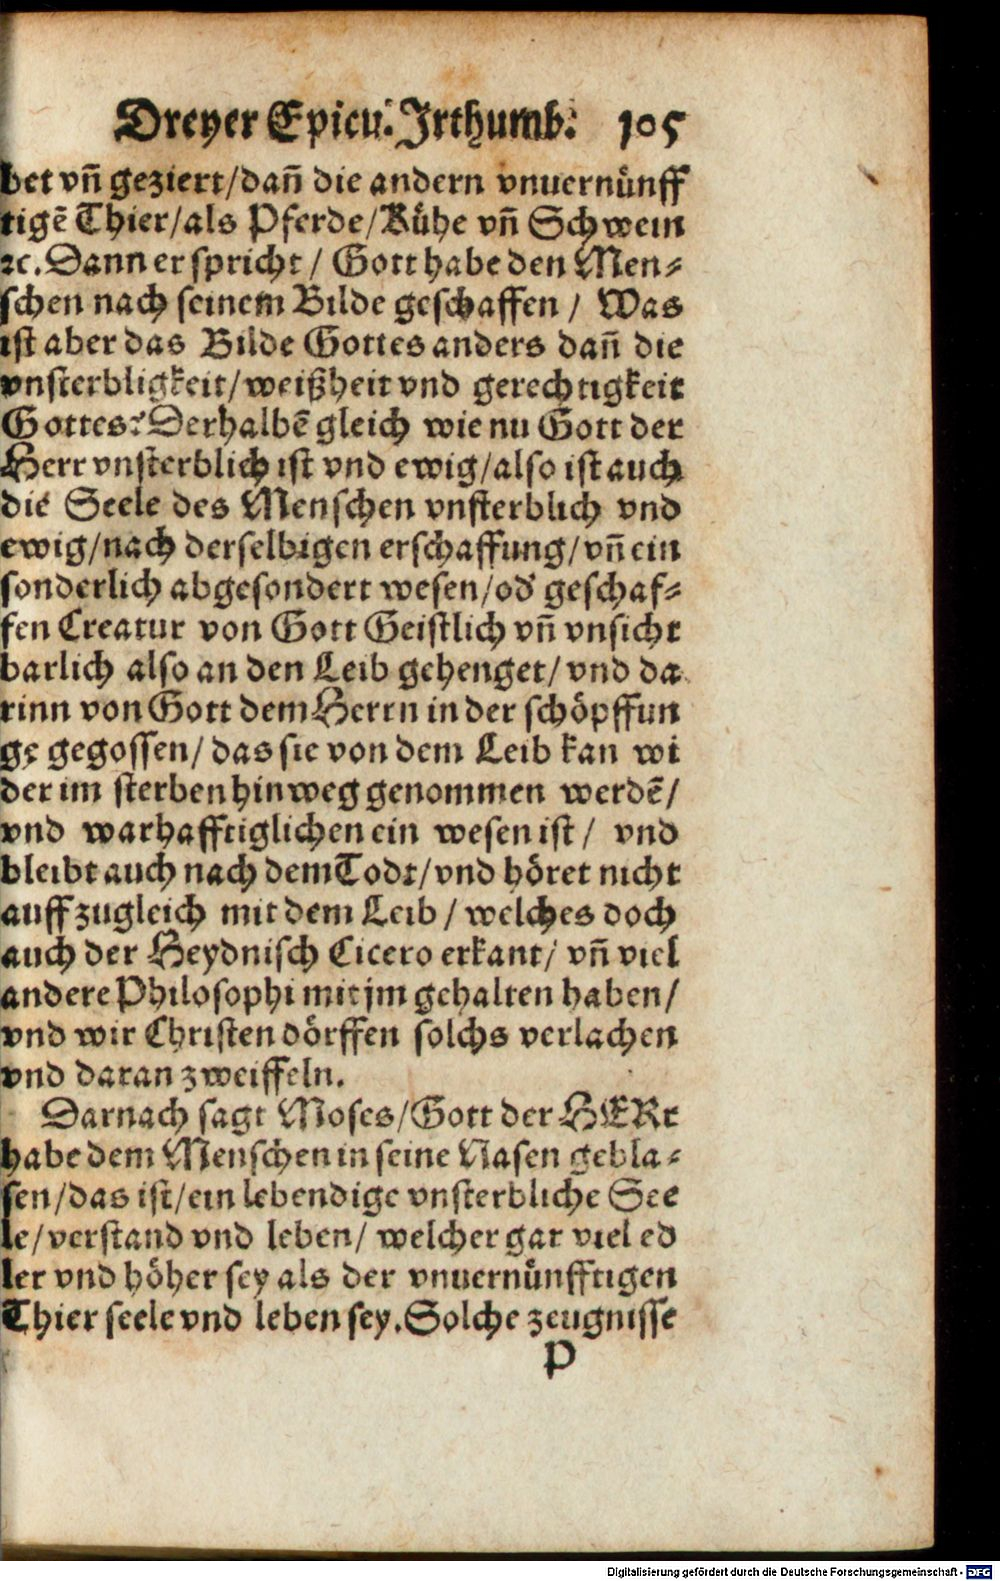 Dreyer Epicu. Irthumb. 105
bet vn̄ geziert/dan̄ die andern vnuernünff
tigē Thier/als Pferde/Kühe vn̄ Schwein
ꝛc. Dann er spricht/ Gott habe den Men⸗
schen nach seinem Bilde geschaffen/ Was
ist aber das Bilde Gottes anders dan̄ die
vnsterbligkeit/weißheit vnd gerechtigkeit
Gottes? Derhalbē gleich wie nu Gott der
Herr vnsterblich ist vnd ewig/also ist auch
die Seele des Menschen vnsterblich vnd
ewig/nach derselbigen erschaffung/vn̄ ein
sonderlich abgesondert wesen/od̛ geschaf⸗
fen Creatur von Gott Geistlich vn̄ vnsicht
barlich also an den Leib gehenget/vnd da
rinn von Gott dem Herrn in der schöpffun
ge gegossen/das sie von dem Leib kan wi
der im sterben hinweg genommen werdē/
vnd warhafftiglichen ein wesen ist/ vnd
bleibt auch nach dem Todt/vnd höret nicht
auff zugleich mit dem Leib/welches doch
auch der Heydnisch Cicero erkant/ vn̄ viel
andere Philosophi mit jm gehalten haben/
vnd wir Christen dörffen solchs verlachen
vnd daran zweiffeln.
Darnach sagt Moses/Gott der HERr
habe dem Menschen in seine Nasen gebla⸗
sen/das ist/ein lebendige vnsterbliche See
le/verstand vnd leben/welcher gar viel ed
ler vnd höher sey als der vnuernünfftigen
Thier seele vnd leben sey. Solche zeugnisse
P
Digitalisierung gefördert durch die Deutsche Forschungsgemeinschaft - DFG